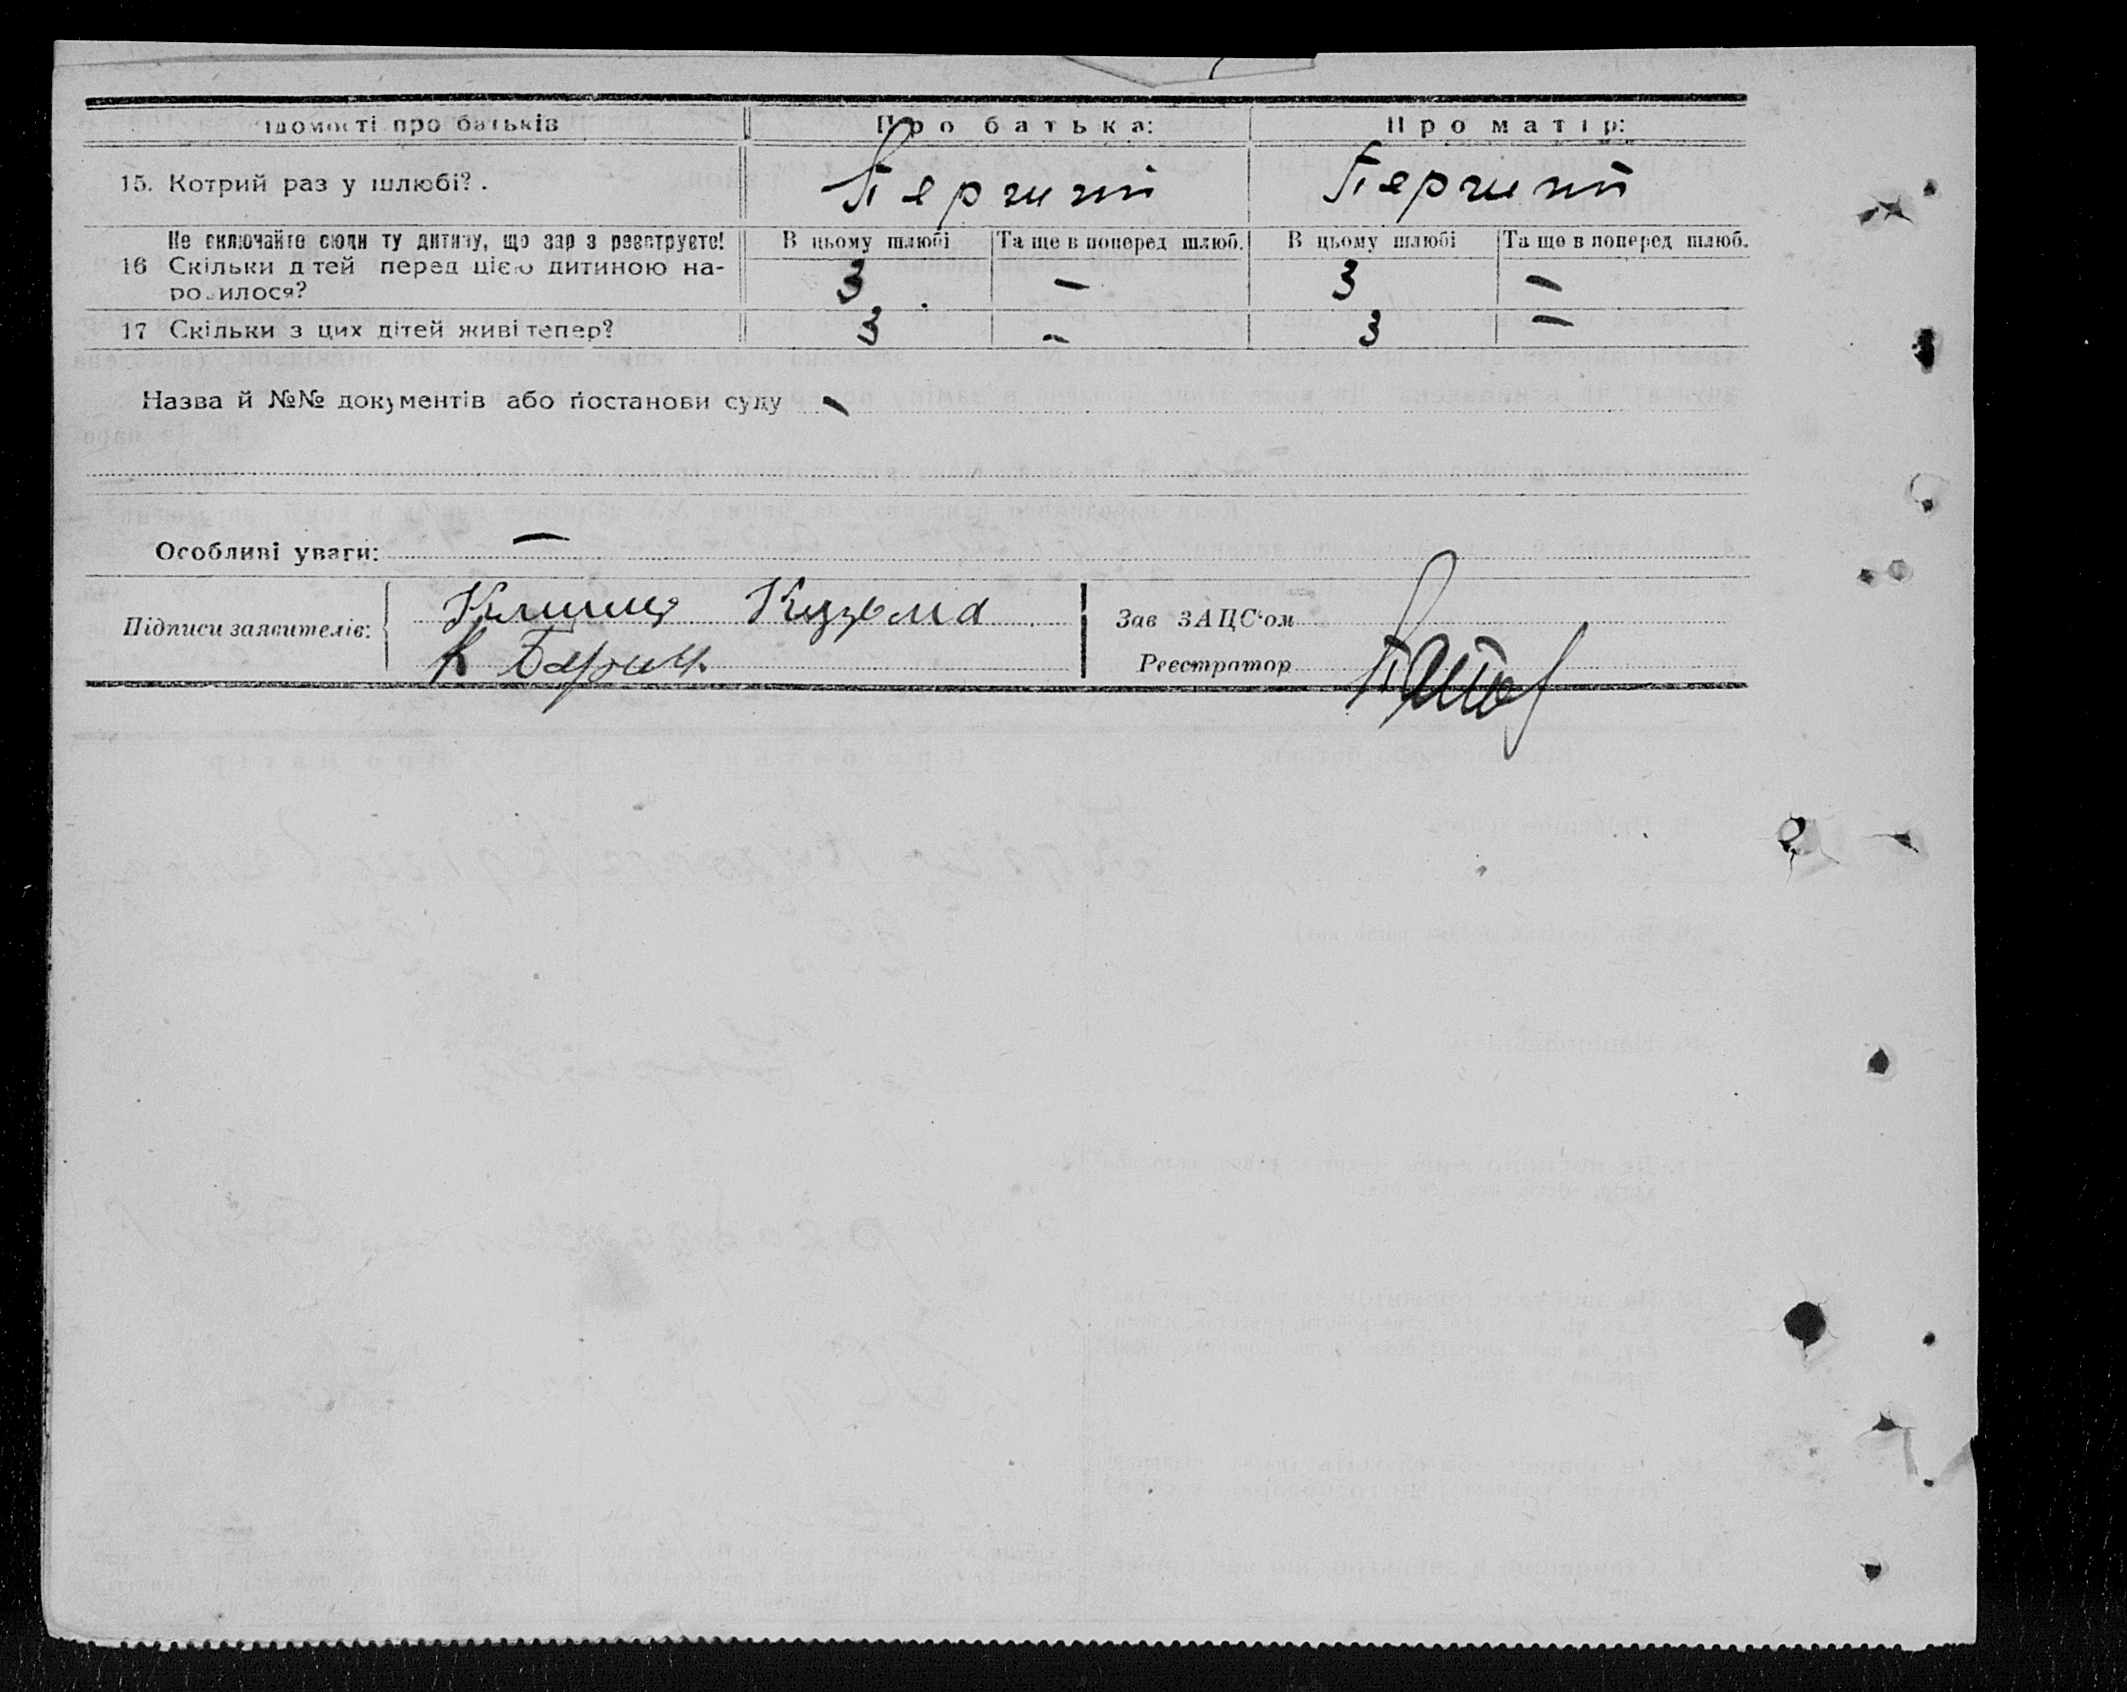 ідомості про батьків Про батька: Про матір:
15. Котрий раз у шлюбі?. Перший Перший
Не включайте сюди ту дитину, що зар з реєструєте! В цьому шлюбі Та ще в поперед шлюб. В цьому шлюбі Та ще в поперед шлюб.
16 Скільки д тей перед цією дитиною на-
родилося? 3 – 3 –
17 Скільки з цих дітей живі тепер? 3 – 3 –
Назва й №№ документів або постанови суду –
Особливі уваги: –
Підписи заявителів: Кузьма
К
Зав ЗАЦС'ом
Реєстратор